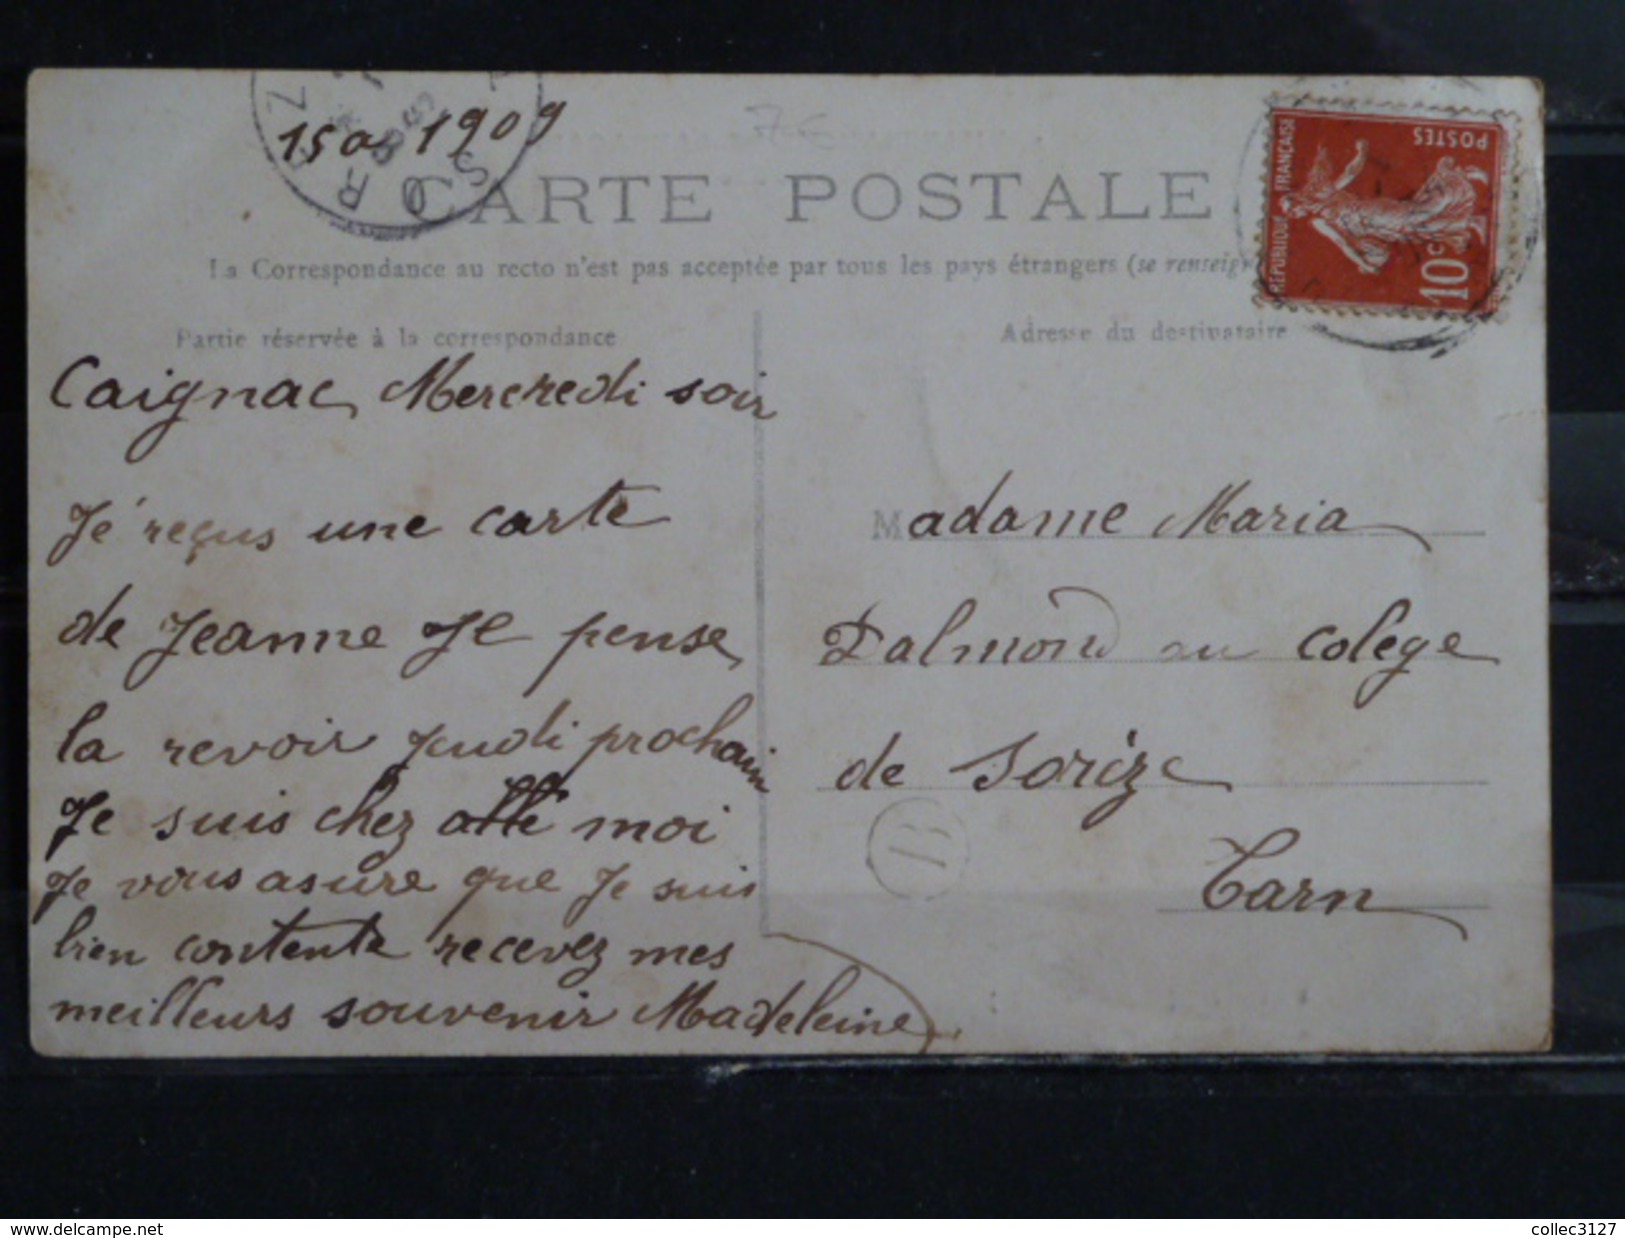 15 a 1909
SORÈZE
CARTE POSTALE
La Correspondance au recto n'est pas acceptée par tous les pays étrangers (se renseign
Partie réservée à la correspondance
Adresse du destinataire
RÉPUBLIQUE FRANÇAISE
POSTES
10c
Caignac Mercredi soir
Je reçus une carte
de Jeanne Je pense
la revoir Jeudi prochain
Je suis chez moi
Je vous asure que Je suis
bien contente recevez mes
meilleurs souvenir Madeleine
Madame Maria
Dalmond au colege
de Sorèze
Tarn
www.delcampe.net
collec3127